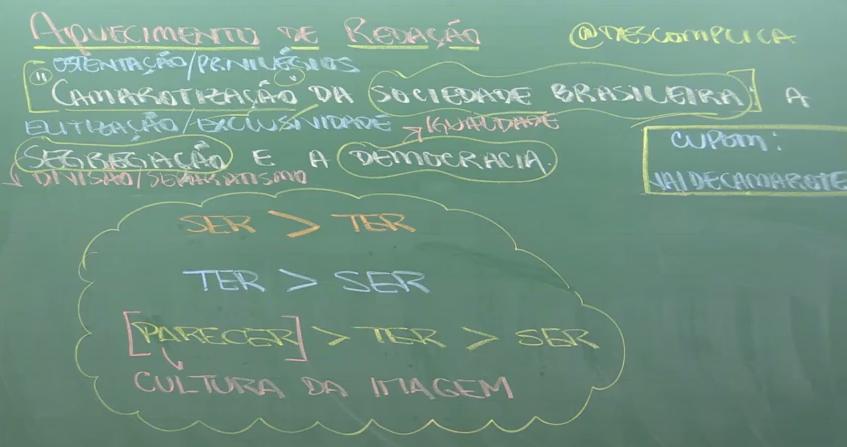 AQUECIMENTO DE REDAÇÃO @DESCOMPLICA
OSTENTAÇÃO/PRIVILÉGIOS
"CAMAROTIZAÇÃO" DA SOCIEDADE BRASILEIRA: A
ELITIZAÇÃO/EXCLUSIVIDADE → IGUALDADE
SEGREGAÇÃO E A DEMOCRACIA.
↳ DIVISÃO/SEPARATISMO
CUPOM:
VAIDECAMAROTE
SER > TER
TER > SER
[PARECER] > TER > SER
CULTURA DA IMAGEM